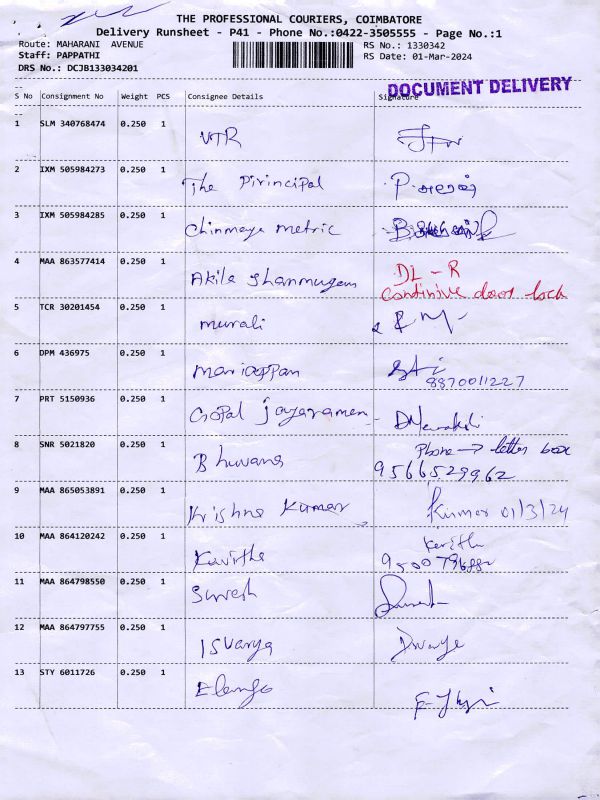 THE PROFESSIONAL COURIERS, COIMBATORE
Delivery Runsheet - P41 - Phone No.:0422-3505555 - Page No.:1
Route: MAHARANI AVENUE
RS No.: 1330342
Staff: PAPPATHI
RS Date: 01-Mar-2024
DRS No.: DCJB133034201
DOCUMENT DELIVERY
S No Consignment No Weight PCS Consignee Details Signature
1 SLM 340768474 0.250 1 VTR
2 IXM 505984273 0.250 1 The Pirincipal
3 IXM 505984285 0.250 1 Chinmaya metric
4 MAA 863577414 0.250 1 Akila Shanmugam DL - R
continive door lock
5 TCR 30201454 0.250 1 murali
6 DPM 436975 0.250 1 mariappan
8870011227
7 PRT 5150936 0.250 1 Gopal jayaramen
8 SNR 5021820 0.250 1 Bhuvana Phone → letter box
9566529962
9 MAA 865053891 0.250 1 Krishna Kumar Kumar 01/3/24
10 MAA 864120242 0.250 1 Kavitha
11 MAA 864798550 0.250 1 Suresh
12 MAA 864797755 0.250 1 Isvarya
13 STY 6011726 0.250 1 Elango